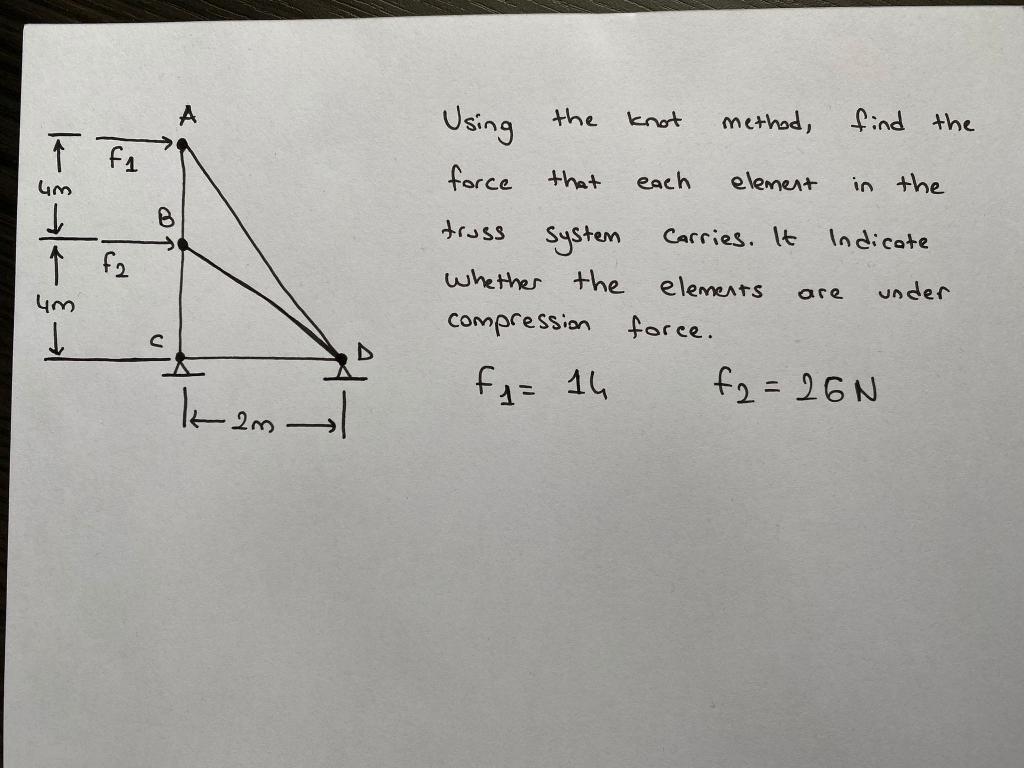 A
f1
4m
B
f2
4m
C
D
2m
Using the knot method, find the
force that each element in the
truss system carries. It Indicate
whether the elements are under
compression force.
f1 = 14 f2 = 26 N